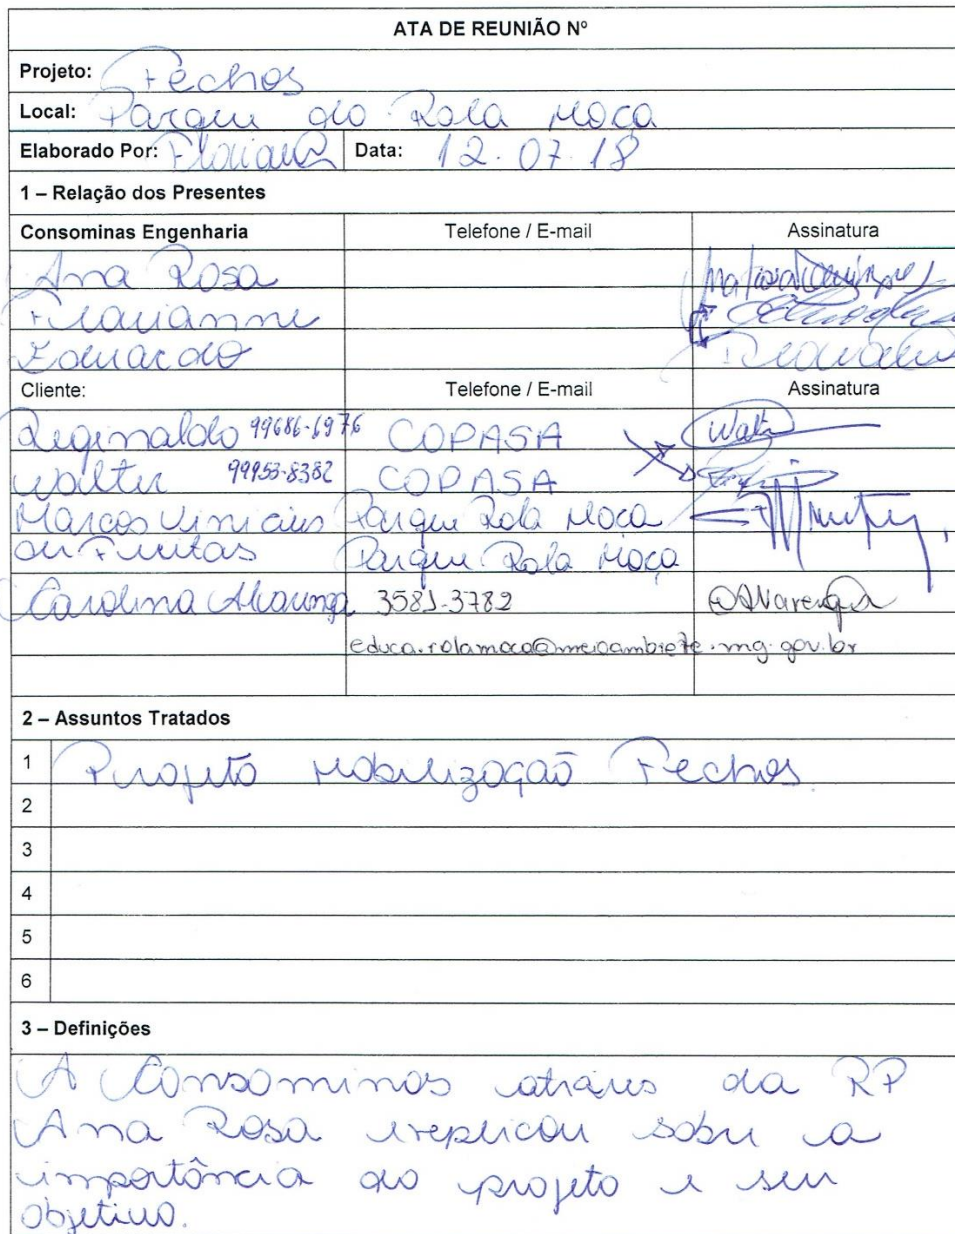 ATA DE REUNIÃO Nº
Projeto: Fechos
Local: Parque do Rola Moça
Elaborado Por: Data: 12.07.18
1 – Relação dos Presentes
Consominas Engenharia Telefone / E-mail Assinatura
Ana Rosa
Flavianne
Eduardo
Cliente: Telefone / E-mail Assinatura
Reginaldo 99686-6976 COPASA Walter
Walter 99953-8382 COPASA
Marcos Vinicius Parque Rola Moça
de Freitas Parque Rola Moça
Carolina Alvarenga 3581-3782 CAlvarenga
educa.rolamoca@meioambiete.mg.gov.br
2 – Assuntos Tratados
1 Projeto Mobilização Fechos
2
3
4
5
6
3 – Definições
A Consominas através da RP
Ana Rosa explicou sobre a
importância do projeto e seu
objetivo.